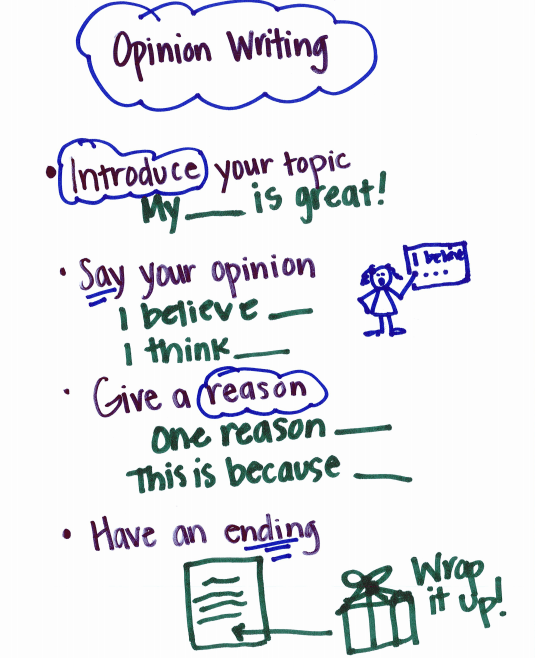 Opinion Writing
• Introduce your topic
My ___ is great!
• Say your opinion
I believe ___
I think ___
I believe
....
• Give a reason
One reason ___
This is because ___
• Have an ending
Wrap
it up!